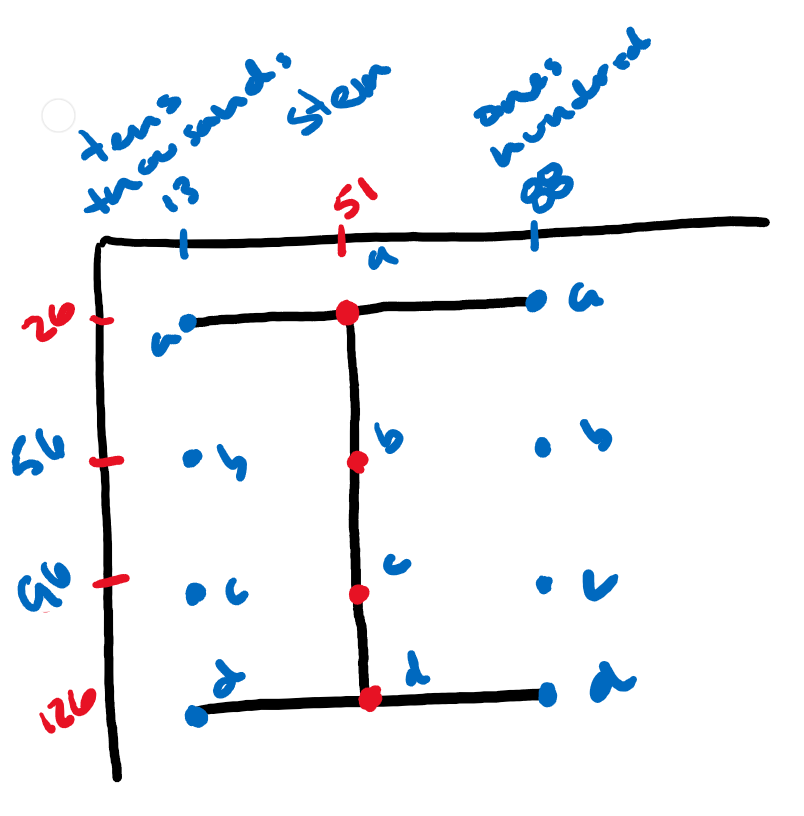 tens
thousands
stem
ones
hundred
13
51
88
a
26
a
a
56
b
b
b
96
c
c
c
126
d
d
d